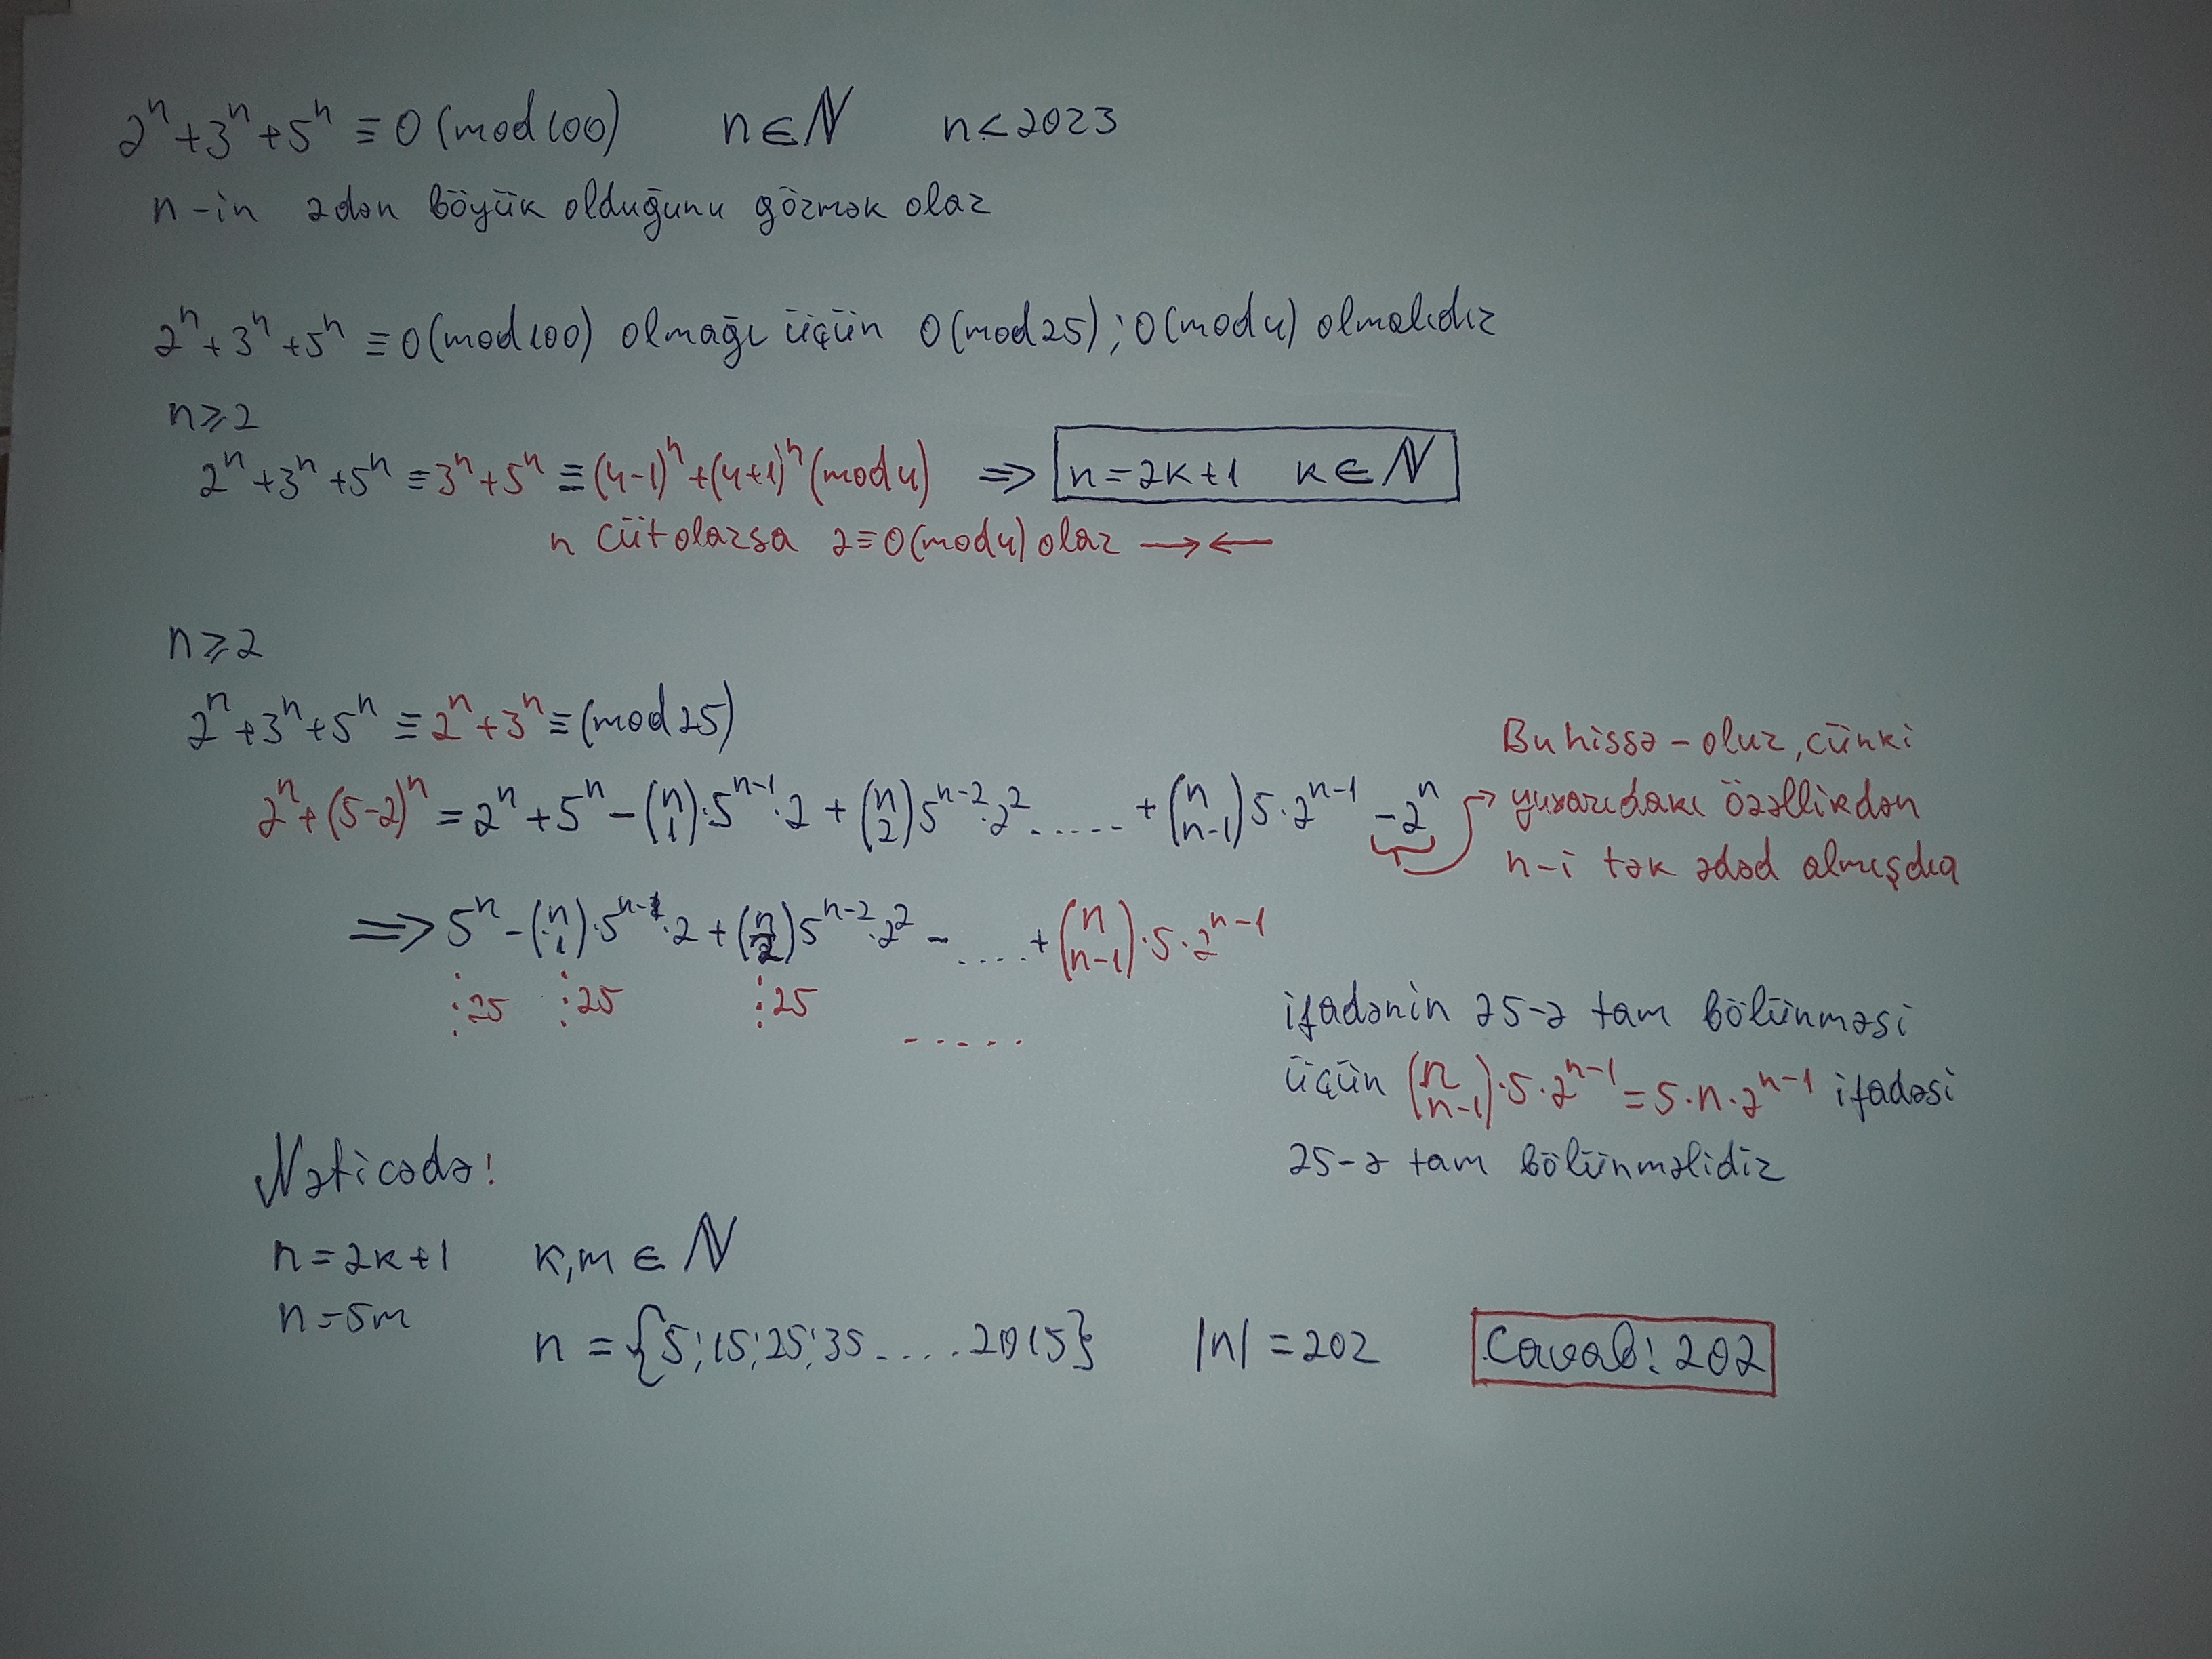 2ⁿ+3ⁿ+5ⁿ ≡ 0 (mod 100) n∈ℕ n<2023
n-in 2dən böyük olduğunu görmək olar
2ⁿ+3ⁿ+5ⁿ ≡ 0 (mod 100) olmağı üçün 0 (mod 25) ; 0 (mod 4) olmalıdır
n⩾2
2ⁿ+3ⁿ+5ⁿ ≡ 3ⁿ+5ⁿ ≡ (4-1)ⁿ+(4+1)ⁿ (mod 4) ⇒ n=2k+1 k∈ℕ
n cüt olarsa 2≡0 (mod 4) olar →←
n⩾2
2ⁿ+3ⁿ+5ⁿ ≡ 2ⁿ+3ⁿ ≡ (mod 25)
2ⁿ+(5-2)ⁿ = 2ⁿ+5ⁿ-(n 1)·5ⁿ⁻¹·2+(n 2)5ⁿ⁻²·2².....+(n n-1)5·2ⁿ⁻¹-2ⁿ
Bu hissə - olur, cünki
yuxarıdakı özəllikdən
n-i tək ədəd almışdıq
⇒ 5ⁿ-(n 1)·5ⁿ⁻¹·2+(n 2)5ⁿ⁻²·2²-.....+(n n-1)·5·2ⁿ⁻¹
⋮25 ⋮25 ⋮25 .....
ifadənin 25-ə tam bölünməsi
üçün (n n-1)·5·2ⁿ⁻¹=5·n·2ⁿ⁻¹ ifadəsi
25-ə tam bölünməlidir
Nəticədə!
n=2k+1 k,m∈ℕ
n=5m
n={5;15;25;35....2015} |n|=202 Cavab: 202